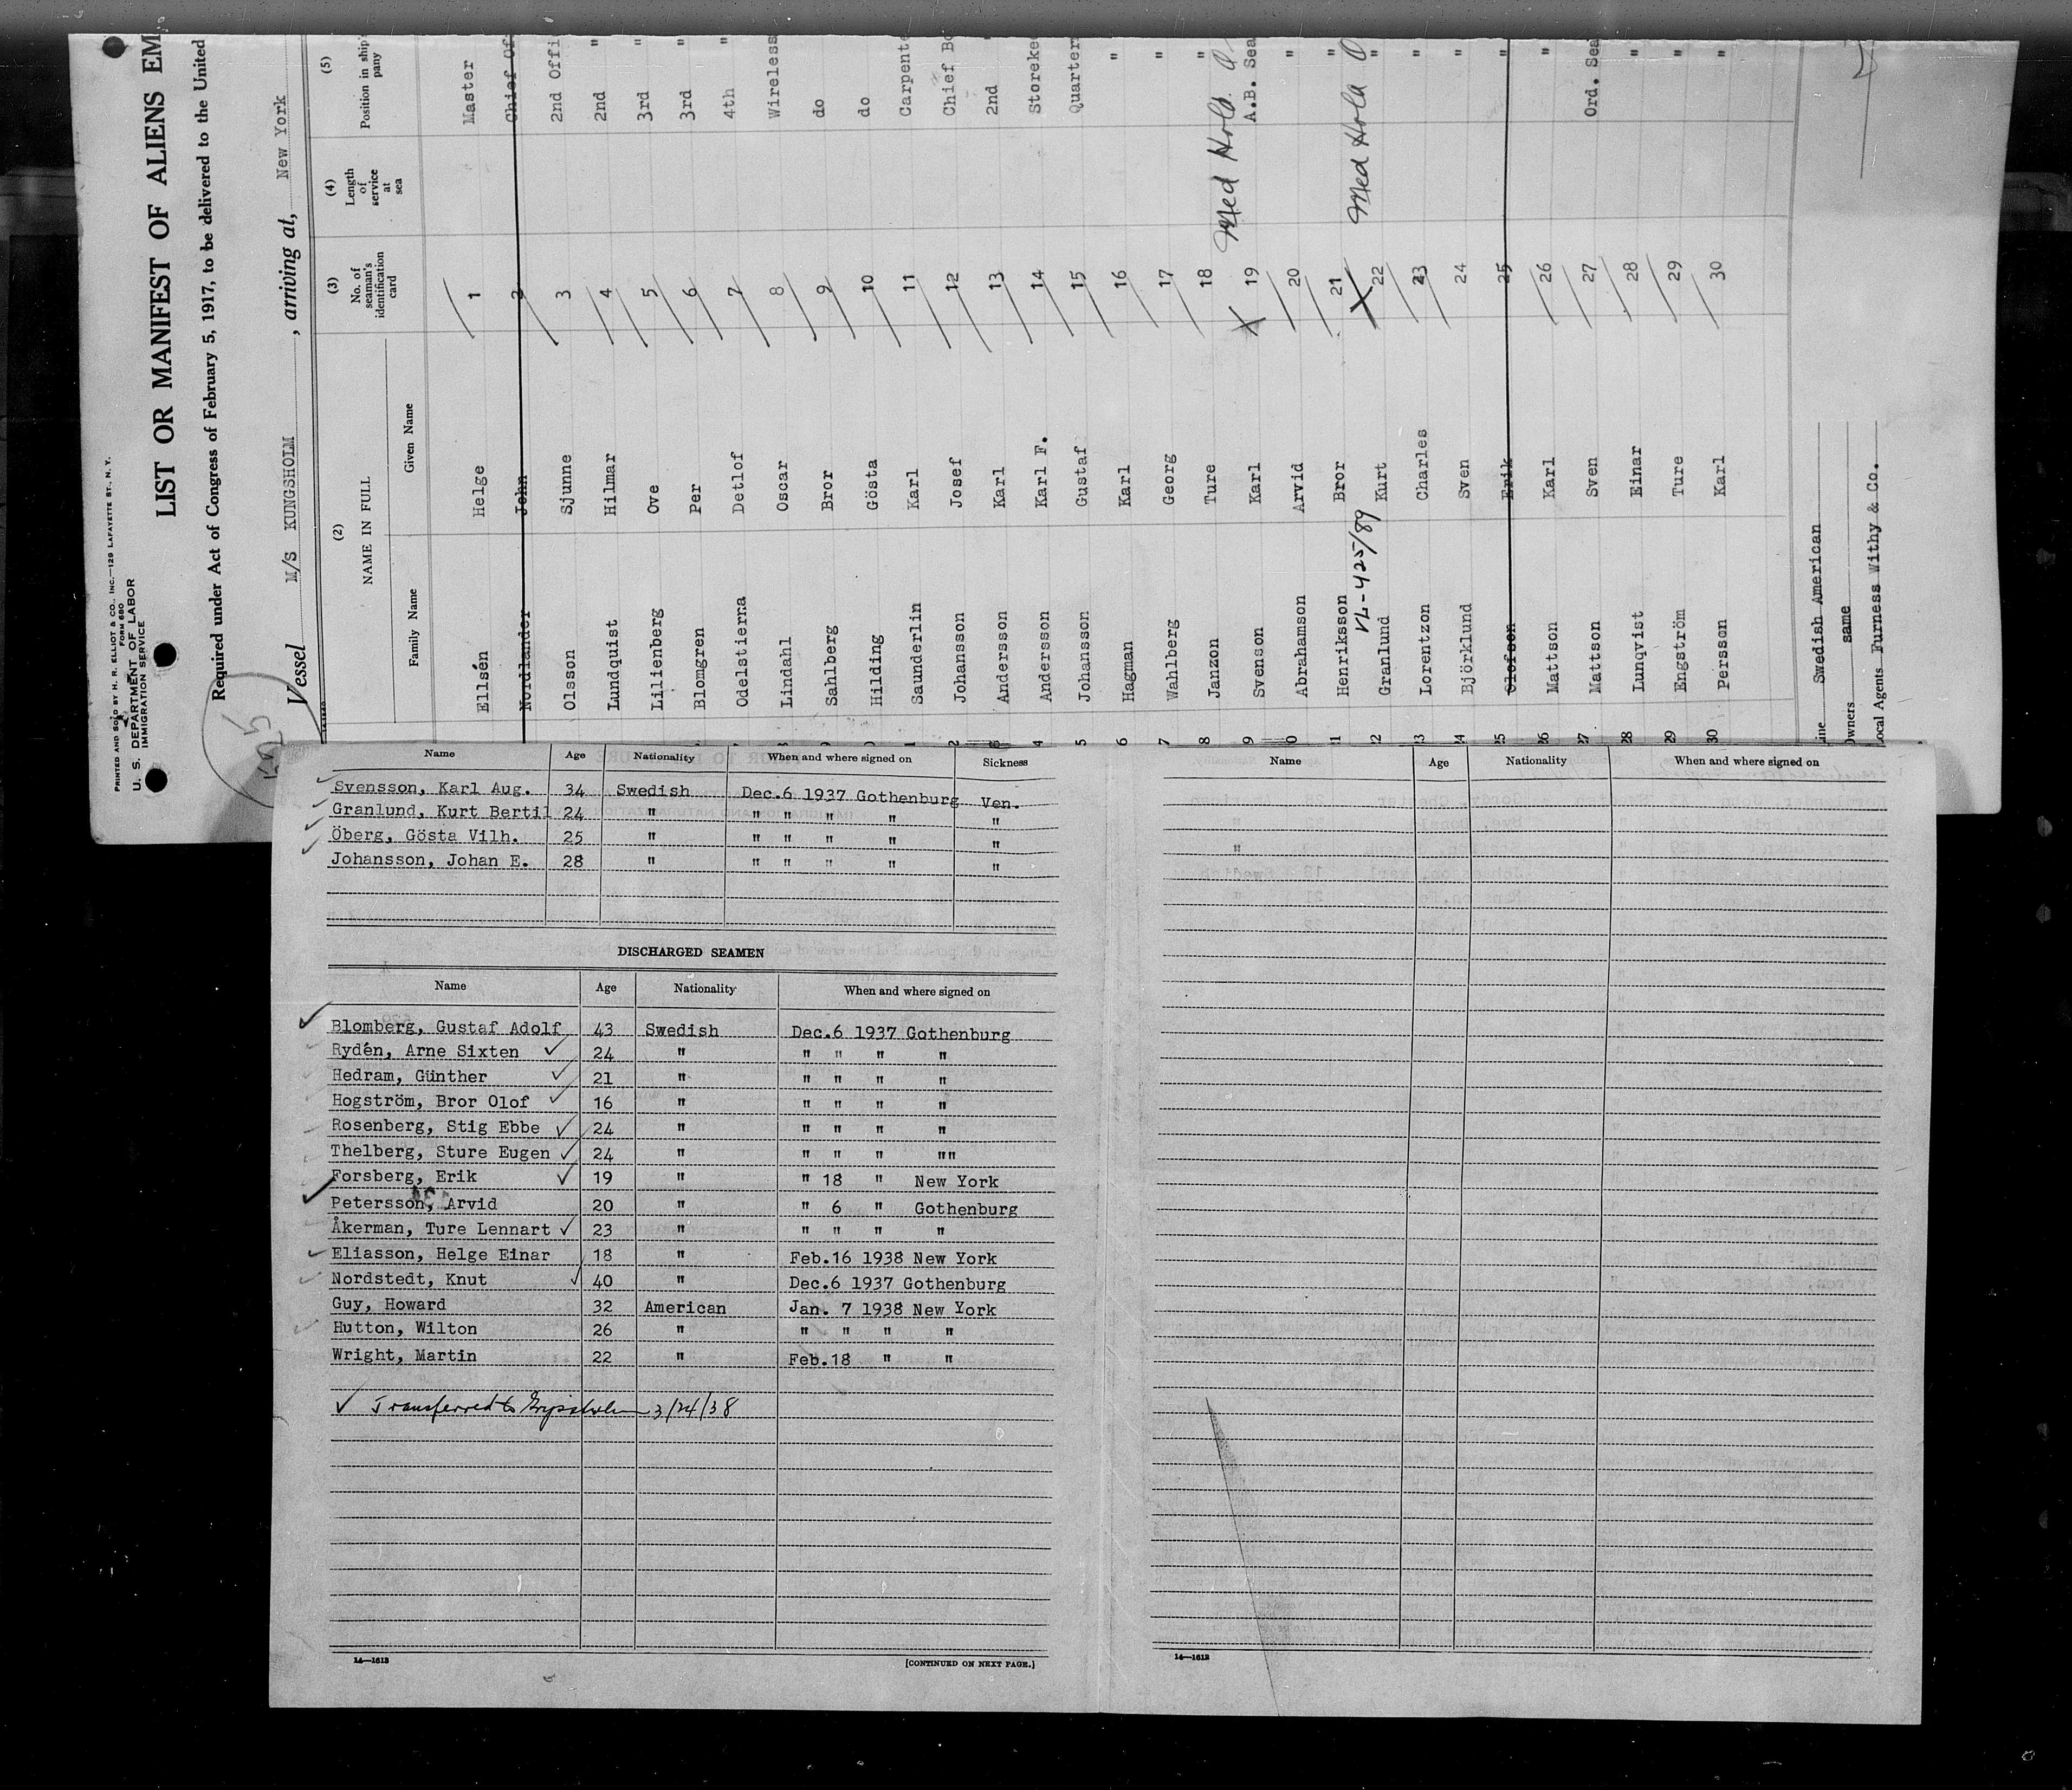 PRINTED AND SOLD BY H. R. ELLIOT & CO., INC.—129 LAFAYETTE ST., N. Y.
FORM 680
U. S. DEPARTMENT OF LABOR
IMMIGRATION SERVICE
LIST OR MANIFEST OF ALIENS EM
Required under Act of Congress of February 5, 1917, to be delivered to the United
Vessel M/S KUNGSHOLM, arriving at, New York
(2) (3) (4) (5)
NAME IN FULL No. of seaman's identification card Length of service at sea Position in ship's pany
Family Name Given Name
Ellsén Helge 1 Master
Nordlander John 2 Chief Of
Olsson Sjunne 3 2nd Offi
Lundquist Hilmar 4 2nd "
Lilienberg Ove 5 3rd "
Blomgren Per 6 3rd "
Odelstierna Detlof 7 4th "
Lindahl Oscar 8 Wireless
Sahlberg Bror 9 do
Hilding Gösta 10 do
Saunderlin Karl 11 Carpente
Johansson Josef 12 Chief Bo
Andersson Karl 13 2nd "
Andersson Karl F. 14 Storekee
Johansson Gustaf 15 Quarter
Hagman Karl 16 "
Wahlberg Georg 17 "
Janzon Ture 18 "
Med Hold
Svenson Karl 19 A.B. Sea
Abrahamson Arvid 20 "
Henriksson Bror 21 "
VL-425/89 Med Hold
Granlund Kurt 22 "
Lorentzon Charles 23 "
Björklund Sven 24 "
Olofson Erik 25 "
Mattson Karl 26 "
Mattson Sven 27 Ord. Sea
Lunqvist Einar 28 "
Engström Ture 29 "
Persson Karl 30 "
ine Swedish American
Owners same
Local Agents Furness Withy & Co.
Name Age Nationality When and where signed on Sickness
Svensson, Karl Aug. 34 Swedish Dec.6 1937 Gothenburg Ven.
Granlund, Kurt Bertil 24 " " " " " "
Öberg, Gösta Vilh. 25 " " " " " "
Johansson, Johan E. 28 " " " " " "
DISCHARGED SEAMEN
Name Age Nationality When and where signed on
Blomberg, Gustaf Adolf 43 Swedish Dec.6 1937 Gothenburg
Rydén, Arne Sixten ✓ 24 " " " " "
Hedram, Günther ✓ 21 " " " " "
Hogström, Bror Olof ✓ 16 " " " " "
Rosenberg, Stig Ebbe ✓ 24 " " " " "
Thelberg, Sture Eugen ✓ 24 " " " " ""
Forsberg, Erik ✓ 19 " " 18 " New York
Petersson, Arvid 20 " " 6 " Gothenburg
Åkerman, Ture Lennart ✓ 23 " " " " "
Eliasson, Helge Einar 18 " Feb.16 1938 New York
Nordstedt, Knut ✓ 40 " Dec.6 1937 Gothenburg
Guy, Howard 32 American Jan. 7 1938 New York
Hutton, Wilton 26 " " " " "
Wright, Martin 22 " Feb.18 " "
✓ Transferred to Gripsholm 3/24/38
14—1613
[CONTINUED ON NEXT PAGE.]
Name Age Nationality When and where signed on
14—1613